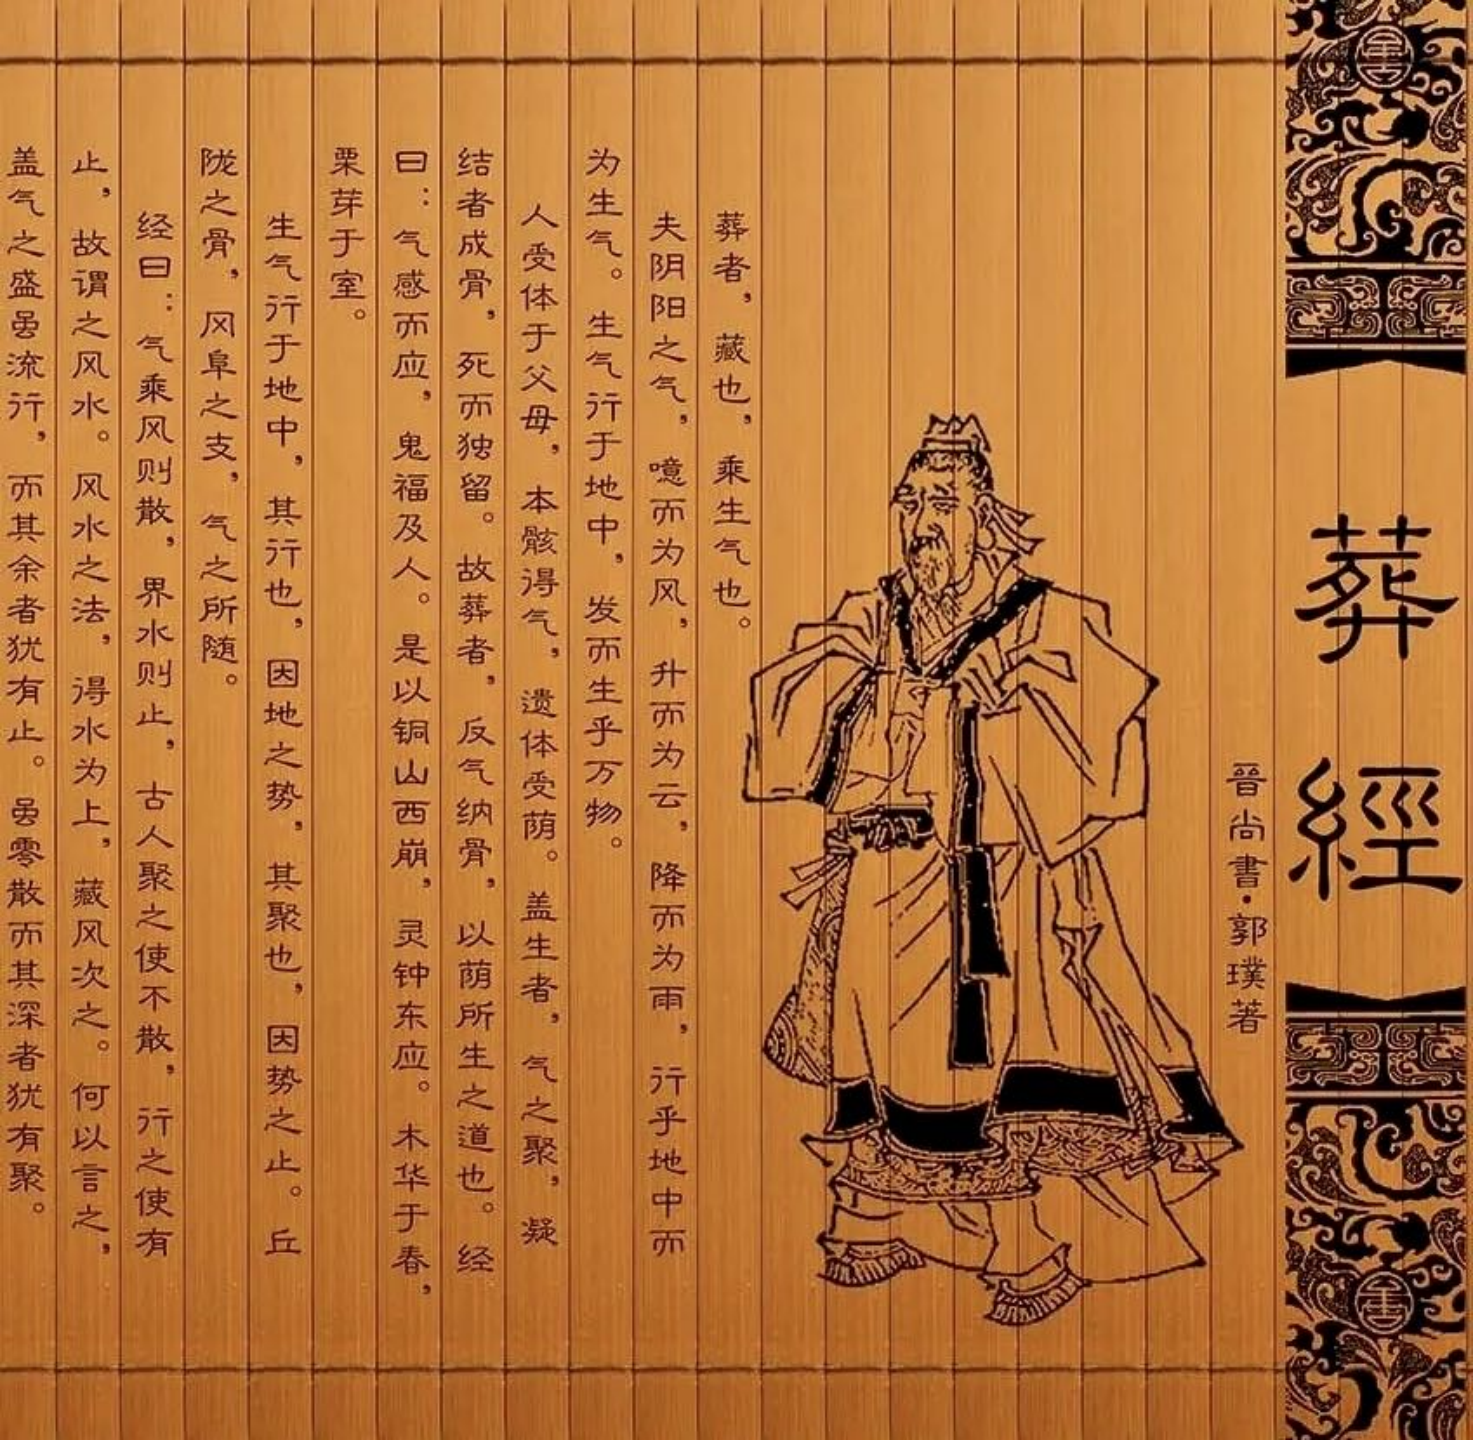 葬經
晉尚書·郭璞著
葬者，藏也，乘生气也。
夫阴阳之气，噫而为风，升而为云，降而为雨，行乎地中而
为生气。生气行于地中，发而生乎万物。
人受体于父母，本骸得气，遗体受荫。盖生者，气之聚，凝
结者成骨，死而独留。故葬者，反气纳骨，以荫所生之道也。经
曰：气感而应，鬼福及人。是以铜山西崩，灵钟东应。木华于春，
栗芽于室。
生气行于地中，其行也，因地之势，其聚也，因势之止。丘
陇之骨，风阜之支，气之所随。
经曰：气乘风则散，界水则止，古人聚之使不散，行之使有
止，故谓之风水。风水之法，得水为上，藏风次之。何以言之，
盖气之盛虽流行，而其余者犹有止。虽零散而其深者犹有聚。